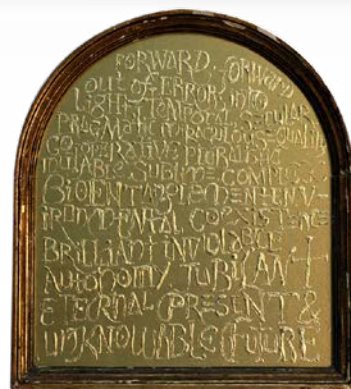 FORWARD, FORWARD
OUT OF ERROR, INTO
LIGHT, TEMPORAL SECULAR
PRAGMATIC MIRACULOUS
COOPERATIVE PLURALISTIC
MUTABLE SUBLIME COMPLEX
BIOENTANGLEMENT ENV
IRONMENTAL COEXISTENCE
BRILLIANT INVIOLABLE
AUTONOMY JUBILANT
ETERNAL PRESENT &
UNKNOWABLE FUTURE